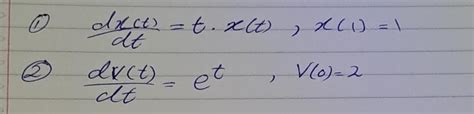 ① dx(t)/dt = t . x(t) , x(1) = 1
② dV(t)/dt = e^t , V(0) = 2